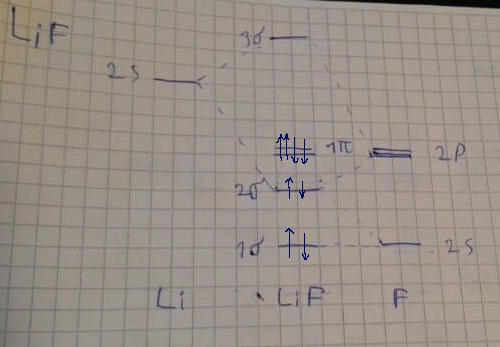 LiF
3σ
2S
1π
2P
2σ
1σ
2S
Li
LiF
F